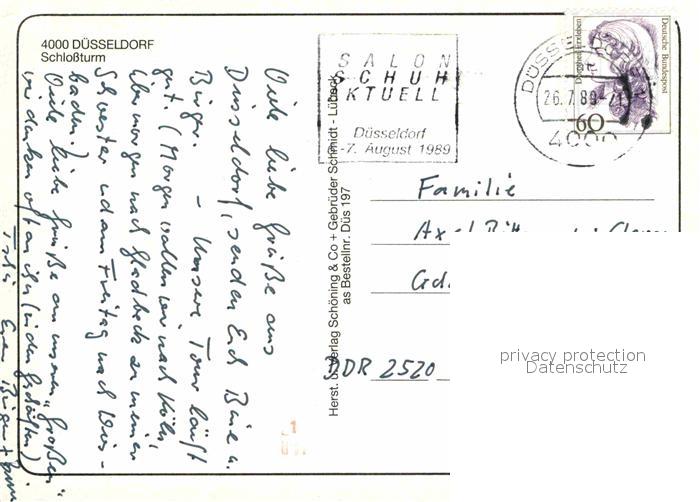 4000 DÜSSELDORF
Schloßturm
SALON
SCHUH
AKTUELL
Düsseldorf
-7. August 1989
DÜSSELDORF
26.7.89-21
4000
Deutsche Bundespost
60
Viele liebe Grüße aus
Düsseldorf, senden Euch
Birgi. - Unsere Tour läuft
gut. (Morgen wollen wir nach Köln,
übermorgen nach Gladbeck zu meiner
Schwester und am Freitag nach Wies-
baden. 
Viele liebe Grüße an unseren "Großen"
wir denken oft an ihn (in den
Herst. u. Verlag Schöning & Co + Gebrüder Schmidt - Lübeck
as Bestellnr. Düs 197
Familie
Axel
DDR 2520
privacy protection
Datenschutz